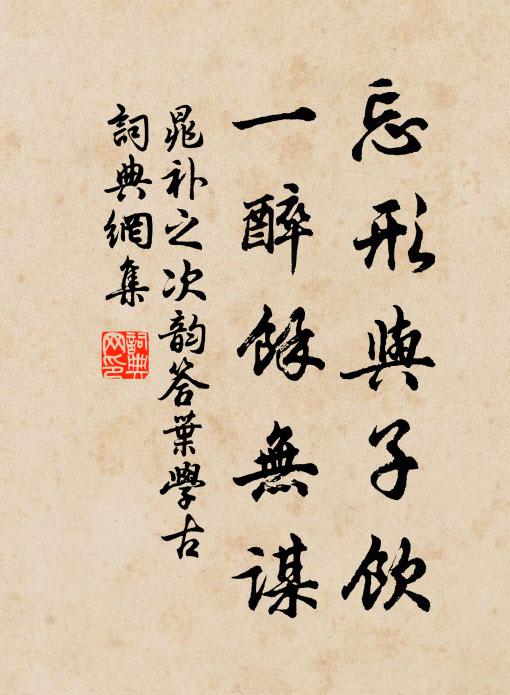 忘形與子飲
一醉餘無謀
晁補之次韵答葉學古
詞典網集
詞典網印